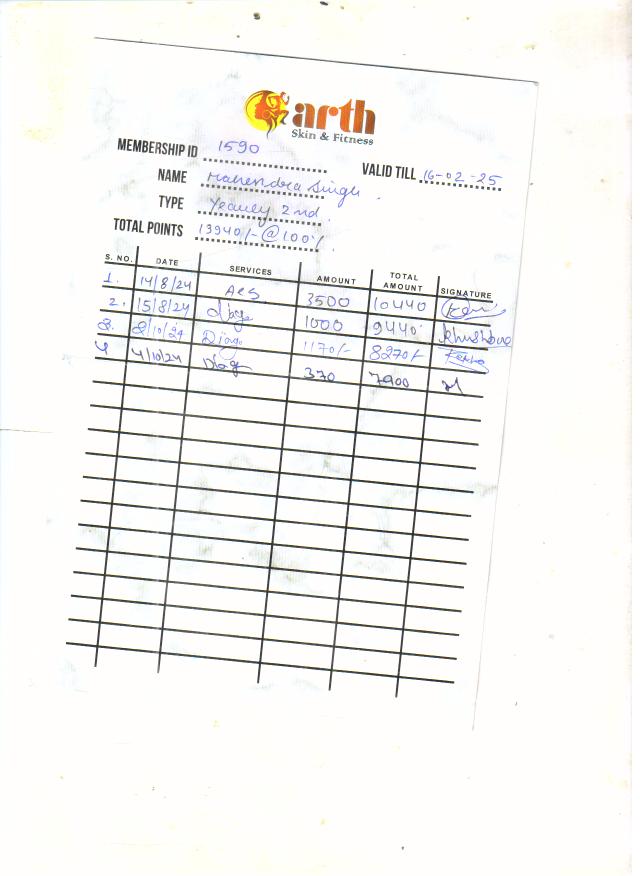 arth
Skin & Fitness
MEMBERSHIP ID 1590
VALID TILL 16-02-25
NAME Mahendra Singh
TYPE Yearly 2nd
TOTAL POINTS 13940/- @100%
S. NO. DATE SERVICES AMOUNT TOTAL AMOUNT SIGNATURE
1. 14/8/24 3500 10440
2. 15/8/24 1000 9440 khushboo
3. 8/10/24 1170/- 8270/-
4 4/10/24 370 7900